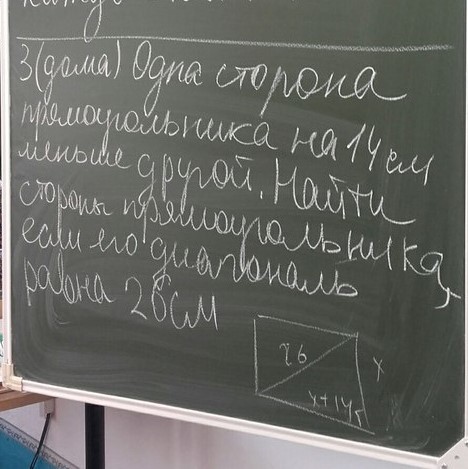 3 (дома) Одна сторона
прямоугольника на 14 см
меньше другой. Найти
стороны прямоугольника,
если его диагональ
равна 26 см
26
x
x+14